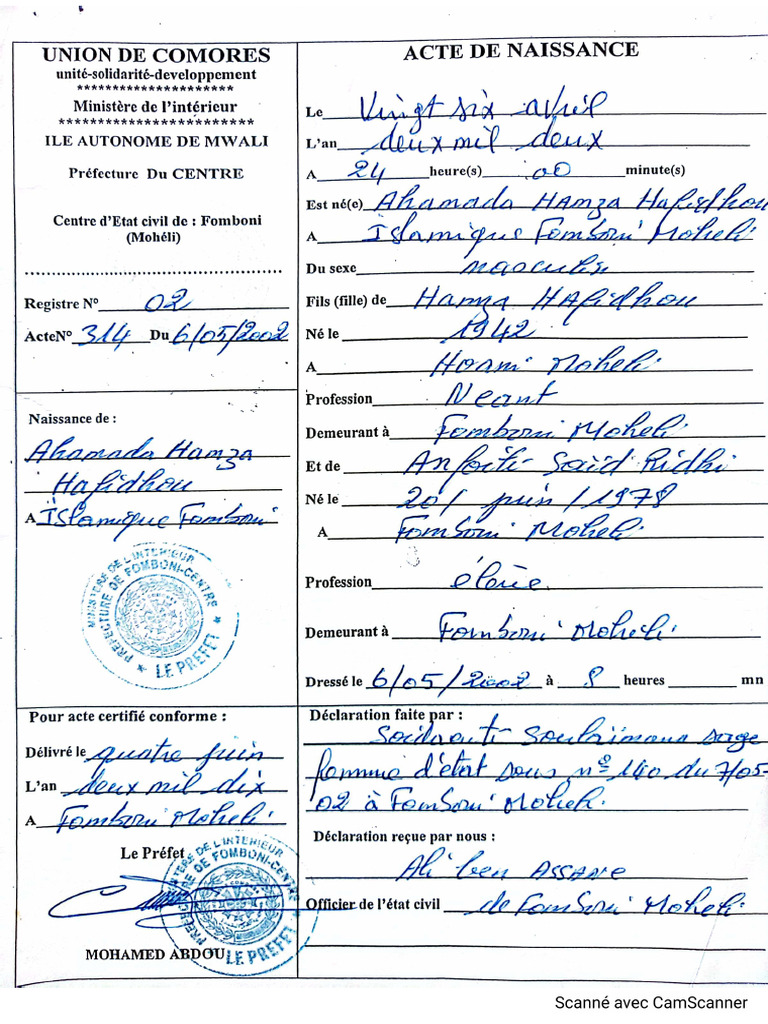 UNION DE COMORES
unité-solidarité-developpement
********************
Ministère de l'intérieur
************************
ILE AUTONOME DE MWALI
Préfecture Du CENTRE
Centre d'Etat civil de : Fomboni
(Mohéli)
Registre N° 02
ActeN° 314 Du 6/05/2002
Naissance de :
Ahamada Hamza
Hafidhou
A Islamique Fomboni
MINISTERE DE L'INTERIEUR
PREFECTURE DE FOMBONI-CENTRE
* LE PREFET *
Pour acte certifié conforme :
Délivré le quatre juin
L'an deux mil dix
A Fomboni Moheli
Le Préfet
MINISTERE DE L'INTERIEUR
PREFECTURE DE FOMBONI-CENTRE
LE PREFET
MOHAMED ABDOU
ACTE DE NAISSANCE
Le Vingt six avril
L'an deux mil deux
A 24 heure(s) 00 minute(s)
Est né(e) Ahamada HAMZA Hafidhou
A Islamique Fomboni Moheli
Du sexe masculin
Fils (fille) de Hamza HAFIDHOU
Né le 1942
A Hoani Moheli
Profession Neant
Demeurant à Fomboni Moheli
Et de Anfoiti Saïd Ridhi
Né le 20/ juin / 1978
A Fomboni Moheli
Profession élève
Demeurant à Fomboni Moheli
Dressé le 6/05/2002 à 8 heures mn
Déclaration faite par :
Soulaimana sage
femme d'état sous n° 140 du 7/05
02 à Fomboni Moheli
Déclaration reçue par nous :
Ali ben ASSANE
Officier de l'état civil de Fomboni Moheli
Scanné avec CamScanner